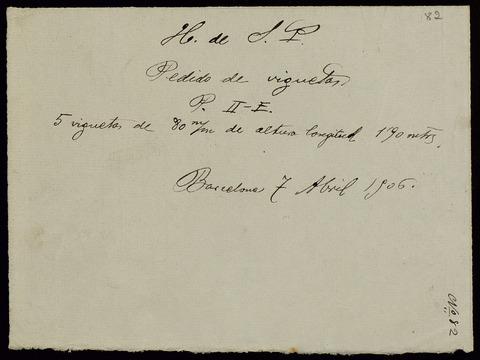 82
H. de S. P.
Pedido de viguetas
P. II-E.
5 viguetas de 80 m/m de altura longitud 1'90 mtrs.
Barcelona 7 Abril 1906.
Nº 82